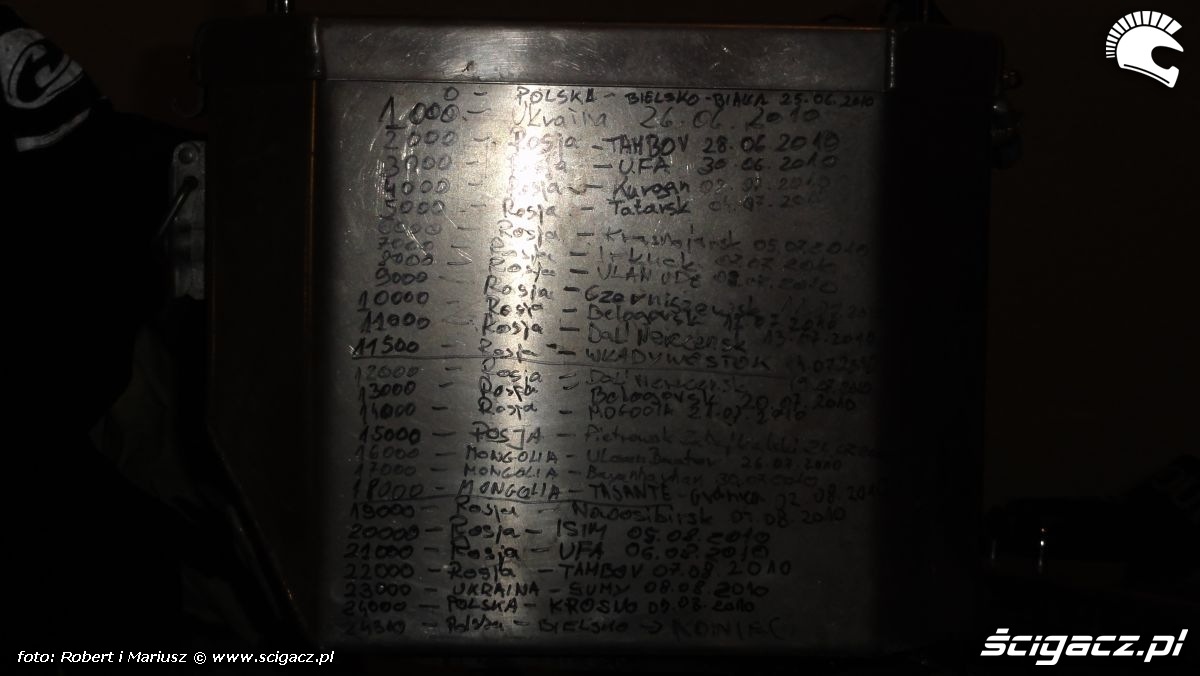 0 - POLSKA - BIELSKO-BIAŁA 25.06.2010
1000 - Ukraina 26.06.2010
2000 - Rosja - TAMBOV 28.06.2010
3000 - Rosja - UFA 30.06.2010
4000 - Rosja - Kurgan 02.07.2010
5000 - Rosja - Tatarsk 04.07.2010
6000 - Rosja - Krasnojarsk 05.07.2010
7000 - Rosja - Irkuck 07.07.2010
8000 - Rosja - ULAN UDE
9000 - Rosja - Czerniszewsk
10000 - Rosja - Belogorsk 12.07.2010
11000 - Rosja - Dal'Nerczensk 13.07.2010
11500 - Rosja - WŁADYWOSTOK 14.07.2010
12000 - Rosja - 19.07.2010
13000 - Rosja - Belogorsk 20.07.2010
14000 - Rosja - MOGOCZA 21.07.2010
15000 - ROSJA - Pietrowsk
16000 - MONGOLIA - Ulaan Baator 26.07.2010
17000 - MONGOLIA - 30.07.2010
18000 - MONGOLIA - TASANTE - Granica 02.08.2010
19000 - Rosja - Nowosibirsk 03.08.2010
20000 - Rosja - ISIM 05.08.2010
21000 - Rosja - UFA 06.08.2010
22000 - Rosja - TAMBOV 07.08.2010
23000 - UKRAINA - SUMY 08.08.2010
24000 - POLSKA - KROSNO 09.08.2010
24310 - Polska - BIELSKO → KONIEC
foto: Robert i Mariusz © www.scigacz.pl
ścigacz.pl